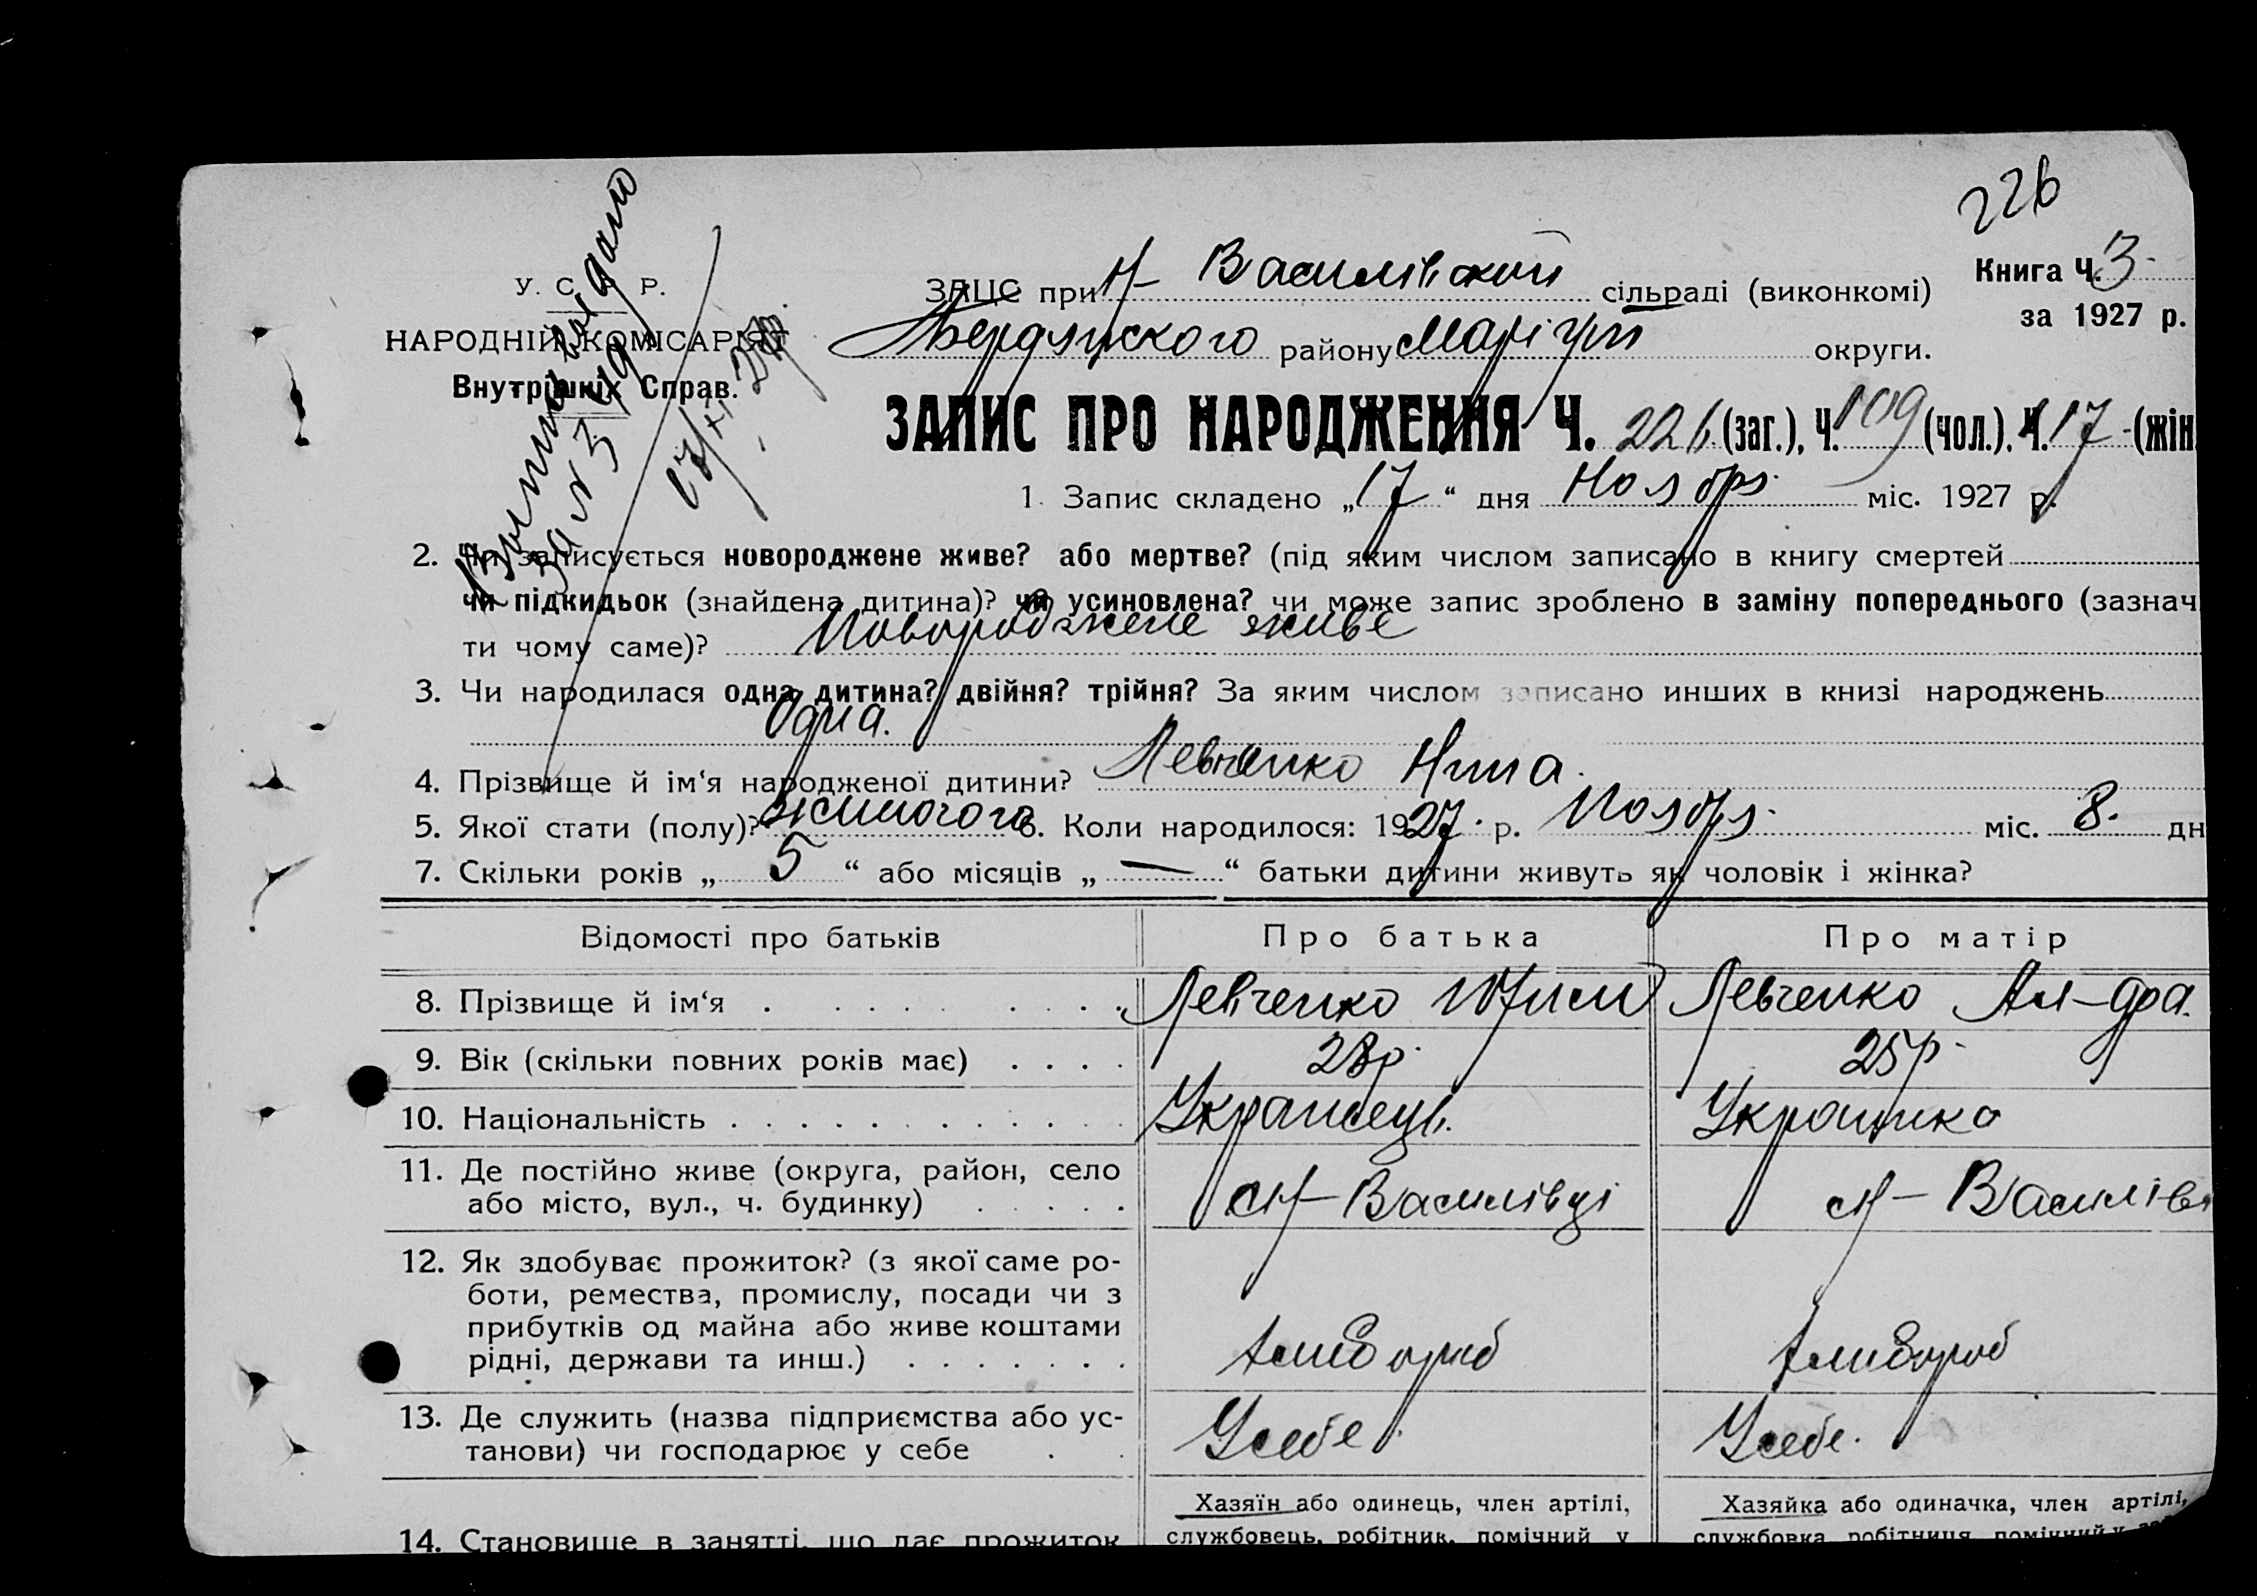 226
У. С. Р. Р.
НАРОДНІЙ КОМІСАРІЯТ
Внутрішніх Справ.
ЗАЦС при Н-Василівской сільраді (виконкомі)
Бердянского району Маріуп округи.
Книга Ч. 3
за 1927 р.
за № 349
17/XI 27р.
ЗАПИС ПРО НАРОДЖЕННЯ Ч. 226 (заг.), Ч. 109 (чол.), Ч. 117 (жін
1. Запис складено „17“ дня Ноябрь міс. 1927 р.
2. Чи записується новороджене живе? або мертве? (під яким числом записано в книгу смертей
чи підкидьок (знайдена дитина)? чи усиновлена? чи може запис зроблено в заміну попереднього (зазнач
ти чому саме)? Новороджене живе
3. Чи народилася одна дитина? двійня? трійня? За яким числом записано инших в книзі народжень
Одна.
4. Прізвище й ім‘я народженої дитини? Левченко Нина.
5. Якої стати (полу)? жіночого 6. Коли народилося: 1927 р. Ноябрь міс. 8. дн
7. Скільки років „5“ або місяців „—“ батьки дитини живуть як чоловік і жінка?
Відомості про батьків Про батька Про матір
8. Прізвище й ім‘я Левченко Левченко Ал-дра.
9. Вік (скільки повних років має) 28р. 25р.
10. Національність Українець. Українка
11. Де постійно живе (округа, район, село
або місто, вул., ч. будинку) с Н-Василівці с Н-Василів
12. Як здобуває прожиток? (з якої саме ро-
боти, ремества, промислу, посади чи з
прибутків од майна або живе коштами
рідні, держави та инш.) Хлибороб Хлибороб
13. Де служить (назва підприємства або ус-
танови) чи господарює у себе У себе. У себе.
14. Становище в занятті, що дає прожиток
Хазяїн або одинець, член артілі,
службовець, робітник, помічний у
Хазяйка або одиначка, член артілі,
службовка, робітниця, помічний у